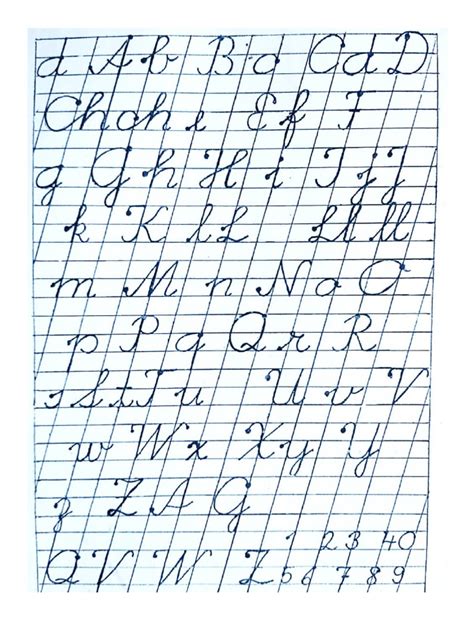 a A b B c C d D
Ch ch e E f F
g G h H i I j J
k K l L Ll ll
m M n N o O
p P q Q r R
s S t T u U v V
w W x X y Y
z Z A G
Q V W Z 1 2 3 4 0
5 6 7 8 9